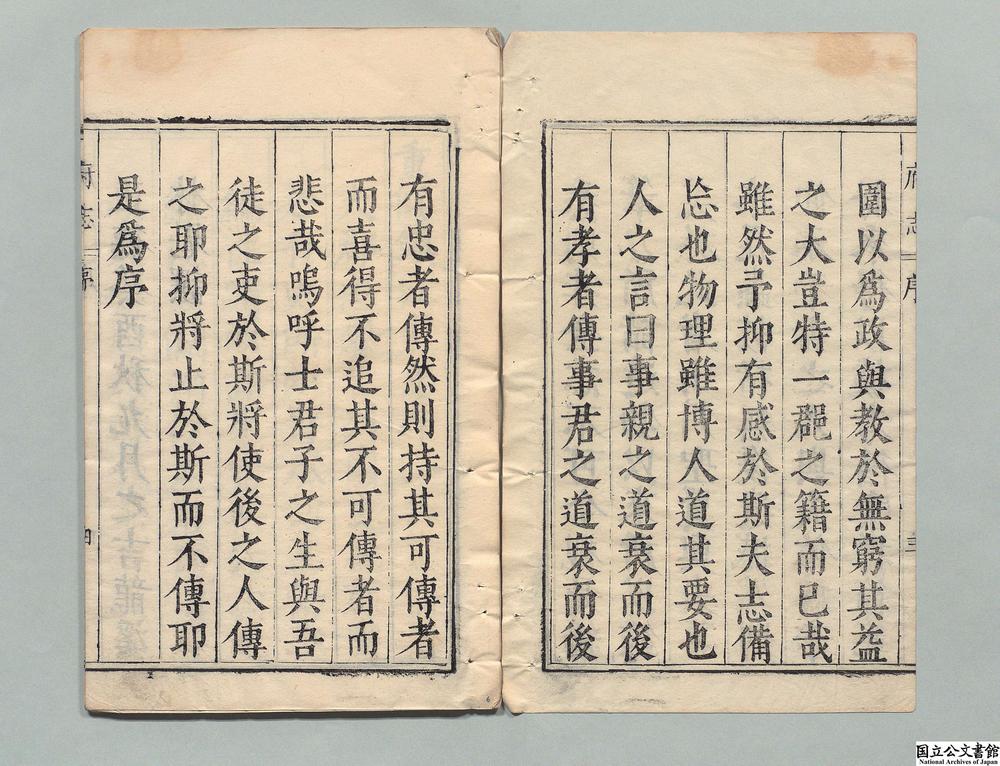 圍以爲政與教於無窮其益
之大豈特一郡之籍而已哉
雖然予抑有感於斯夫志備
忘也物理雖博人道其要也
人之言曰事親之道衰而後
有孝者傳事君之道衰而後
有忠者傳然則持其可傳者
而喜得不追其不可傳者而
悲哉嗚呼士君子之生與吾
徒之吏於斯將使後之人傳
之耶抑將止於斯而不傳耶
是爲序
府志 序 三
府志 序 四
国立公文書館
National Archives of Japan